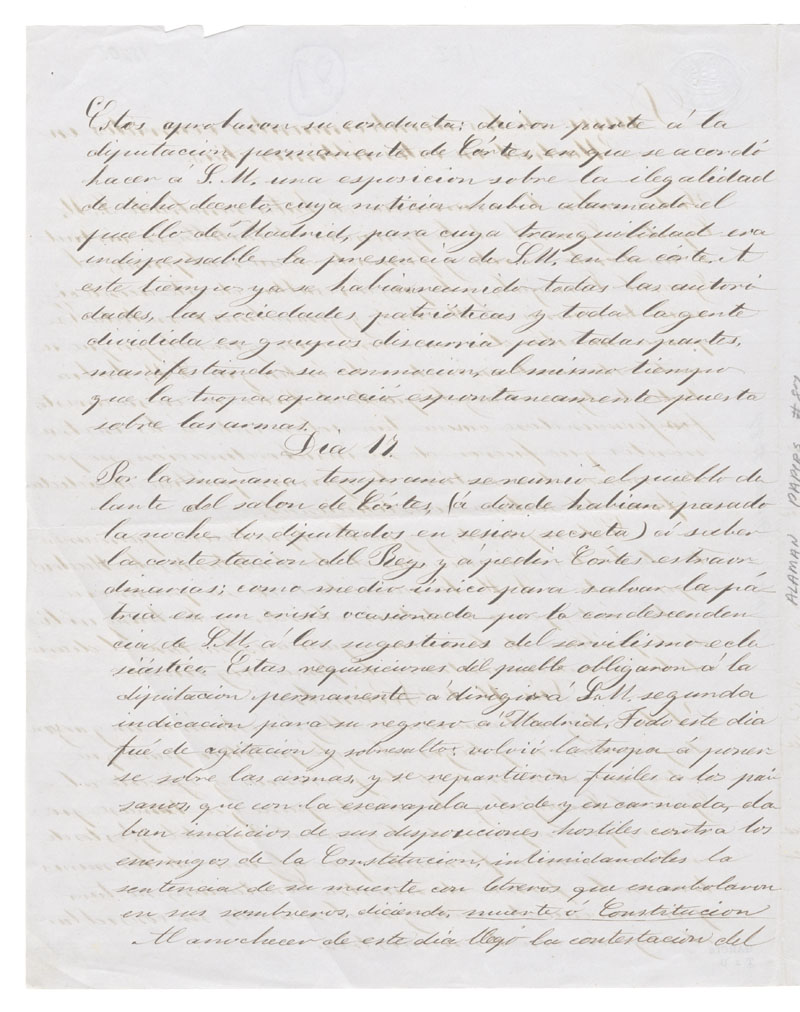 Estos aprobaron su conducta; dieron parte á la
diputacion permanente de Córtes, en que se acordó
hacer á S.M. una esposicion sobre la ilegalidad
de dicho decreto, cuya noticia habia alarmado el
pueblo de Madrid, para cuya tranquilidad era
indispensable la presencia de S.M. en la córte. A
este tiempo ya se habian reunido todas las autori
dades, las sociedades patrióticas y toda la gente
dividida en grupos discurria por todas partes,
manifestando su conmocion, al mismo tiempo
que la tropa apareció espontaneamente puesta
sobre las armas.
Dia 17.
Por la mañana temprano se reunió el pueblo de
lante del salon de Córtes, (á donde habian pasado
la noche los diputados en sesion secreta) á saber
la contestacion del Rey, y á pedir Cortes estraor
dinarias; como medio único para salvar la pá
tria en un crisis ocasionada por la condescenden
cia de S.M. á las sugestiones del servilismo ecle
siástico. Estas requisiciones del pueblo obligaron á la
diputacion permanente á dirigir á S.M. segunda
indicacion para su regreso á Madrid. Todo este dia
fué de agitacion y sobresalto: volvió la tropa á poner
se sobre las armas, y se repartieron fusiles a los pai
sanos, que con la escarapela verde y encarnada, da
ban indicios de sus disposiciones hostiles contra los
enemigos de la Constitucion, intimidandoles la
sentencia de su muerte con letreros que enarbolaron
en sus sombreros, diciendo, muerte ó Constitucion
Al anochecer de este dia llegó la contestacion del
ALAMAN PAPERS #801